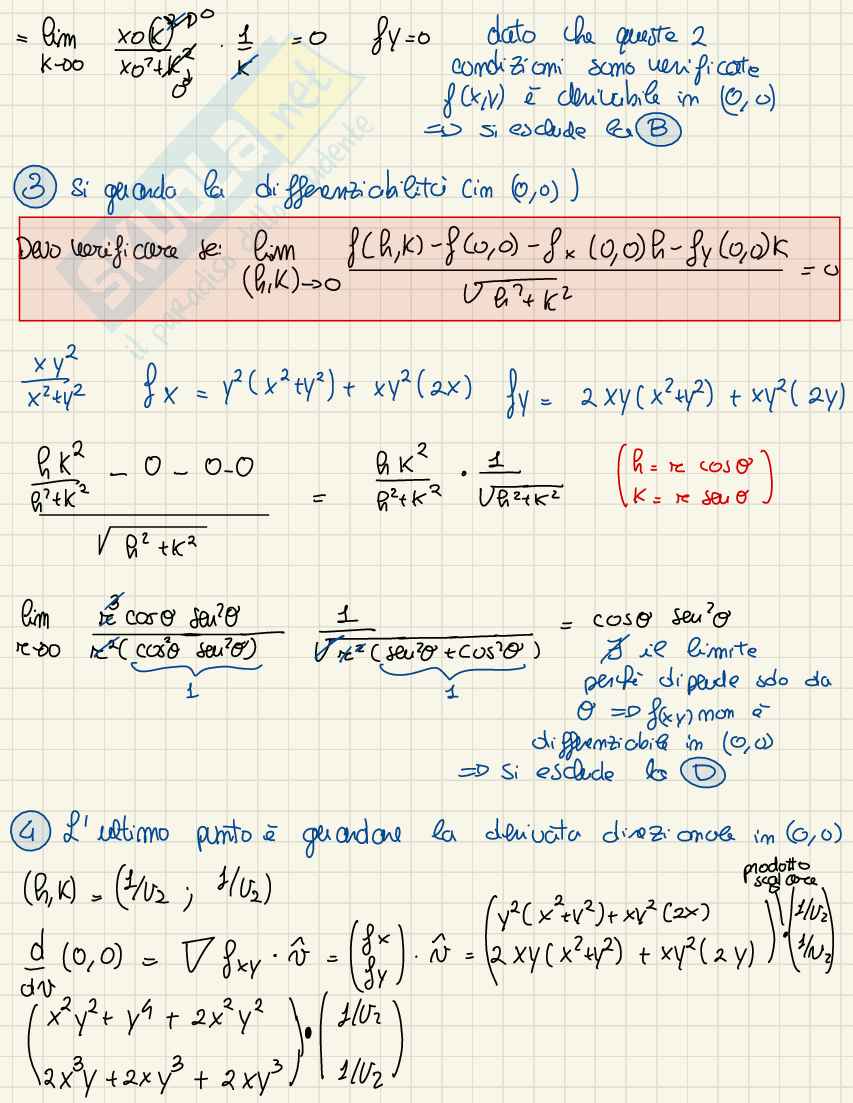 = lim x0(k)²→0 / x0²+k² · 1/k = 0 fy=0
k→0 0
dato che queste 2
condizioni sono verificate
f(x,y) è derivabile in (0,0)
=> si esclude la B
3 Si guarda la differenziabilità (in (0,0))
Devo verificare se: lim f(h,k) - f(0,0) - fx (0,0)h - fy (0,0)k / √h²+k² = 0
(h,k)→0
xy² / x²+y² fx = y²(x²+y²) + xy²(2x) fy = 2xy(x²+y²) + xy²(2y)
hk² / h²+k² - 0 - 0-0 / √h²+k² = hk² / h²+k² · 1 / √h²+k²
(h = r cosθ
k = r senθ)
lim r³ cosθ sen²θ / r²(cos²θ sen²θ) 1 / √r²(sen²θ + cos²θ) = cosθ sen²θ
r→0
1 1
∄ il limite
perché dipende solo da
θ => f(xy) non è
differenziabile in (0,0)
=> Si esclude la D
4 L'ultimo punto è guardare la derivata direzionale in (0,0)
(h,k) = (1/√2 ; 1/√2)
prodotto
scalare
d/dv (0,0) = ∇fxy · v̂ = (fx fy) · v̂ = (y²(x²+y²) + xy²(2x) 2xy(x²+y²) + xy²(2y)) · (1/√2 1/√2)
(x²y² + y⁴ + 2x²y² 2x³y + 2xy³ + 2xy³) · (1/√2 1/√2)
SKUOLA.net
il paradiso dello studente